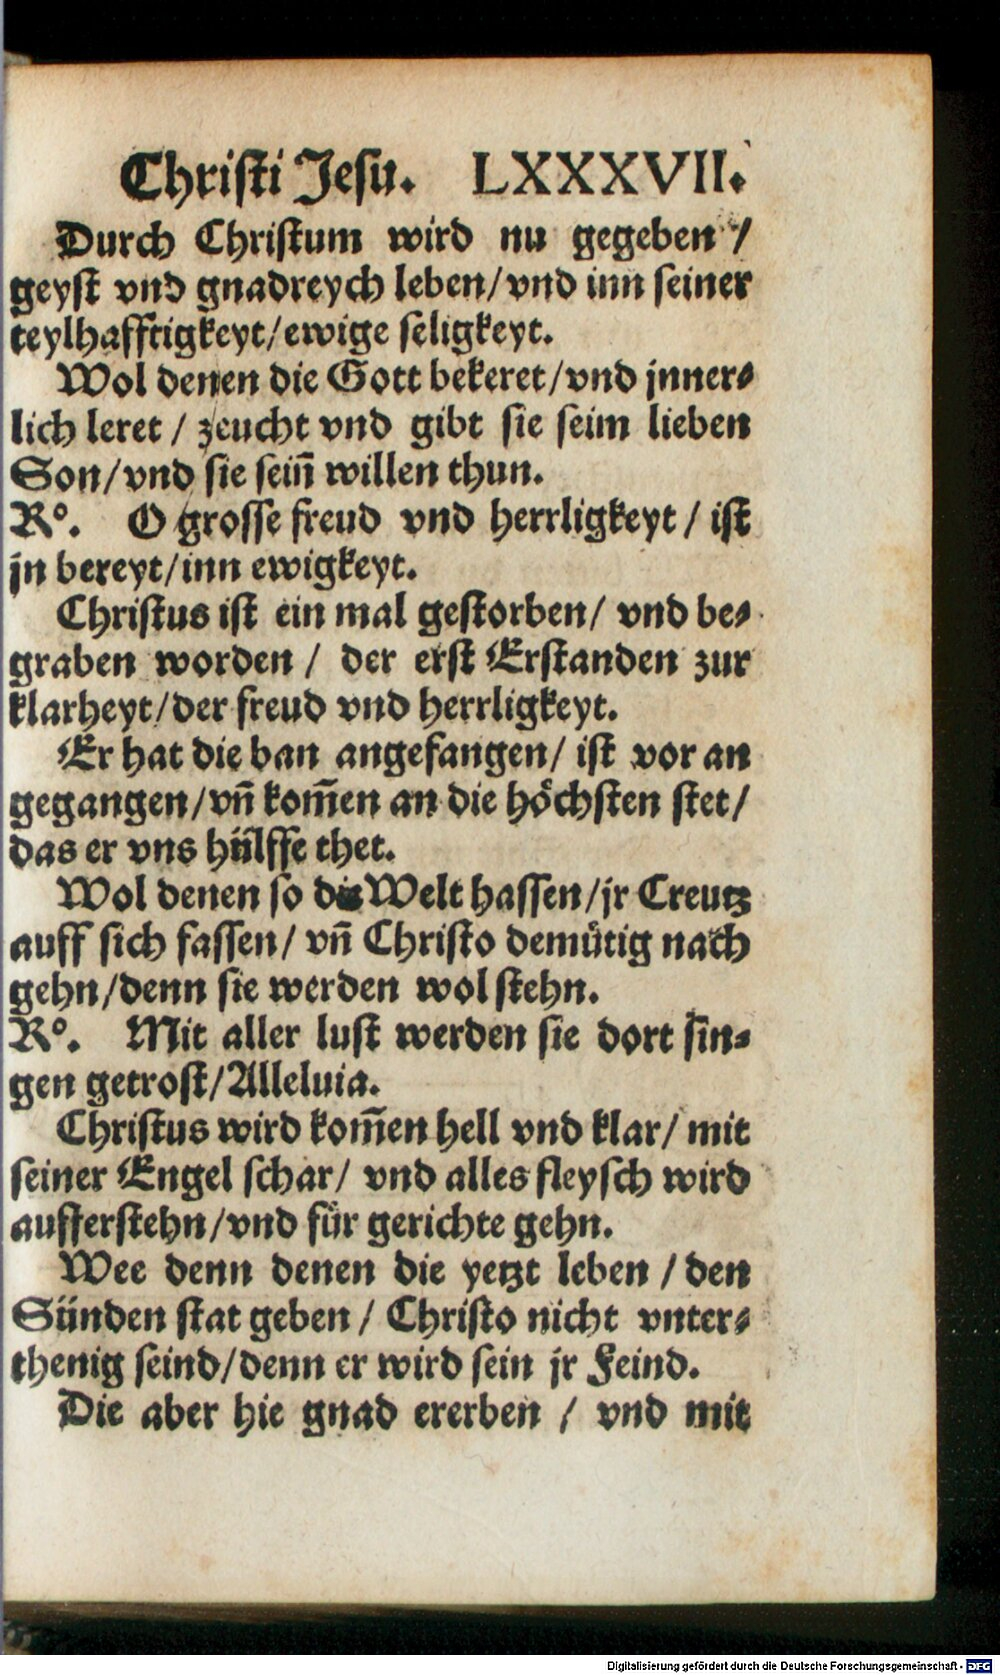 Christi Jesu. LXXXVII.
Durch Christum wird nu gegeben /
geyst vnd gnadreych leben/vnd inn seiner
teylhafftigkeyt/ewige seligkeyt.
Wol denen die Gott bekeret/vnd jnner⸗
lich leret / zeucht vnd gibt sie seim lieben
Son/vnd sie sein̄ willen thun.
R°. O grosse freud vnd herrligkeyt / ist
jn bereyt/inn ewigkeyt.
Christus ist ein mal gestorben/ vnd be⸗
graben worden / der erst Erstanden zur
klarheyt/der freud vnd herrligkeyt.
Er hat die ban angefangen/ ist vor an
gegangen/vn̄ kom̄en an die höchsten stet/
das er vns hülffe thet.
Wol denen so die Welt hassen/jr Creutz
auff sich fassen/ vn̄ Christo demütig nach
gehn/denn sie werden wol stehn.
R°. Mit aller lust werden sie dort sin⸗
gen getrost/Alleluia.
Christus wird kom̄en hell vnd klar/ mit
seiner Engel schar/ vnd alles fleysch wird
aufferstehn/vnd für gerichte gehn.
Wee denn denen die yetzt leben / den
Sünden stat geben / Christo nicht vnter⸗
thenig seind/denn er wird sein jr Feind.
Die aber hie gnad ererben / vnd mit
Digitalisierung gefördert durch die Deutsche Forschungsgemeinschaft - DFG